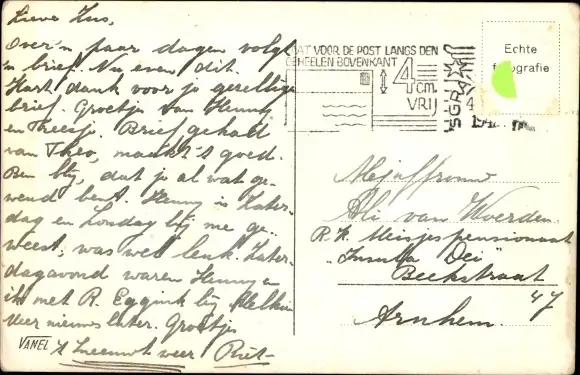 Lieve Zus,
Over 'n paar dagen volgt
'n brief. Nu even dit.
Hart. dank voor je gezellige
brief. Groetjes van Henny
en Theesje. Brief gehad
van Theo, maakt 't goed.
Ben blij, dat je al wat ge-
wend bent. Henny is Zater-
dag en Zondag bij me ge-
weest, was wel leuk. Zater-
dagavond waren Henny en
ik met R. Eggink bij
Meer nieuws later. Groetjes
VANEL
't weer Riet
AT VOOR DE POST LANGS DEN
GEHEELEN BOVENKANT
4 cm.
VRIJ
Echte
fotografie
Mejuffrouw
Ali van Woerden
R. K. Meisjespensionaat
"Insula Dei
Beekstraat
47
Arnhem.